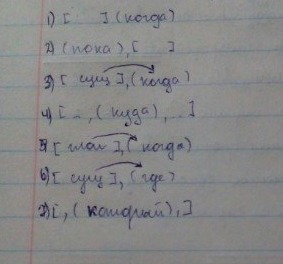 1) [ ], (когда)
2) (пока), [ ]
3) [ сущ ], (когда)
4) [ .., (куда), .. ]
5) [ глаг ], (когда)
6) [ сущ ], (где)
7) [, (который), ]